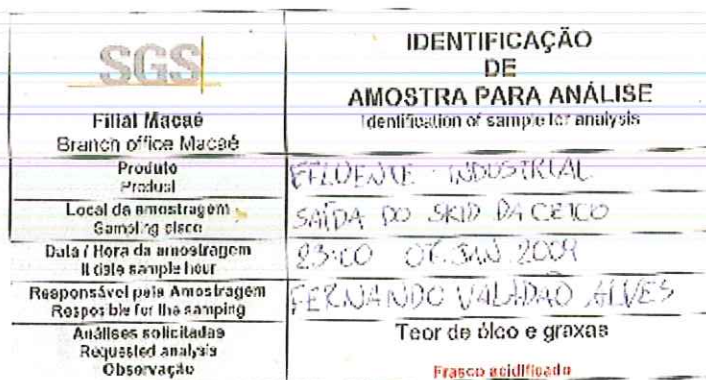 SGS
Filial Macaé
Branch office Macaé
IDENTIFICAÇÃO
DE
AMOSTRA PARA ANÁLISE
Identification of sample for analysis
Produto
Product
EFLUENTE INDUSTRIAL
Local da amostragem
SAÍDA DO SKID DA CETCO
Data / Hora da amostragem
date sample hour
23:00 JAN 2009
Responsável pela Amostragem
Resposible for the samping
FERNANDO VALADÃO ALVES
Análises solicitadas
Requested analysis
Observação
Teor de óleo e graxas
Frasco acidificado